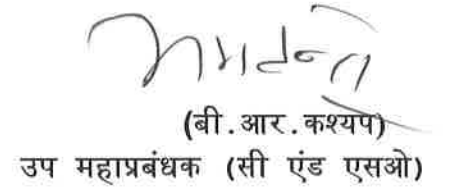 (बी.आर.कश्यप)
उप महाप्रबंधक (सी एंड एसओ)